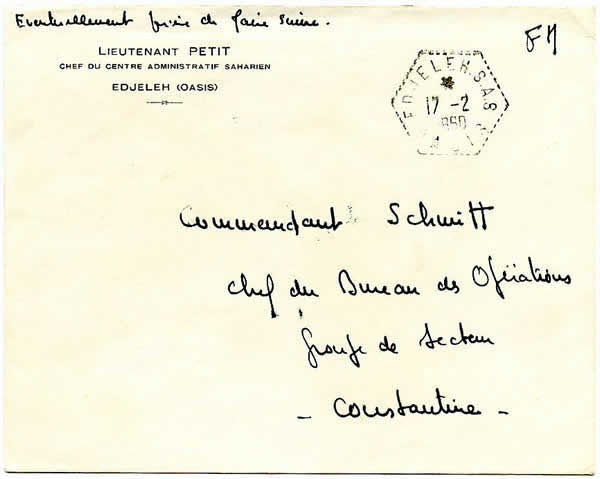 Eventuellement prière de faire suivre.
LIEUTENANT PETIT
CHEF DU CENTRE ADMINISTRATIF SAHARIEN
EDJELEH (OASIS)
FM
EDJELEH.S.A.S
17 -2
1960
Commandant Schmitt
Chef du Bureau des Opérations
Groupe de Secteur
- Constantine -